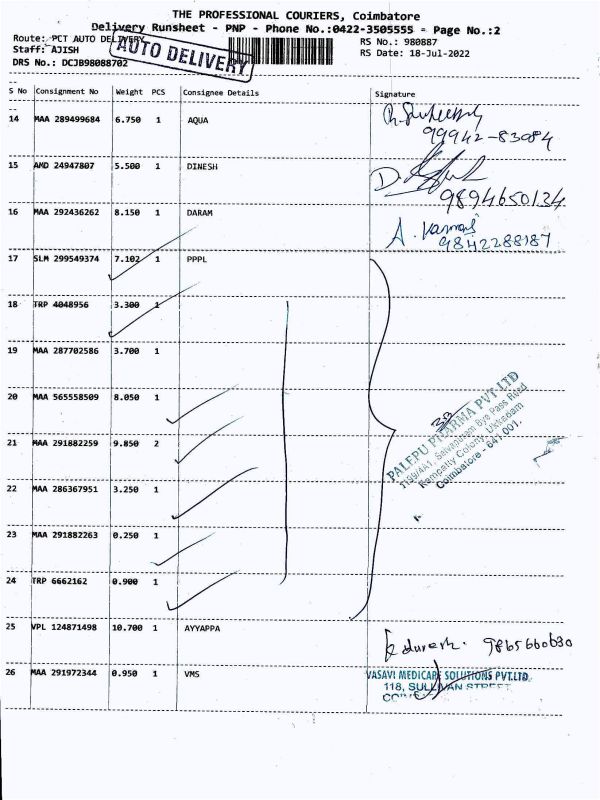 THE PROFESSIONAL COURIERS, Coimbatore
Delivery Runsheet - PNP - Phone No.:0422-3505555 - Page No.:2
Route: PCT AUTO DELIVERY
RS No.: 980887
Staff: AJISH
AUTO DELIVERY
RS Date: 18-Jul-2022
DRS No.: DCJB98088702
S No Consignment No Weight PCS Consignee Details Signature
14 MAA 289499684 6.750 1 AQUA
99942-83084
15 AMD 24947807 5.500 1 DINESH
9894650134
16 MAA 292436262 8.150 1 DARAM
9842288187
17 SLM 299549374 7.102 1 PPPL
18 TRP 4048956 3.300 1
19 MAA 287702586 3.700 1
20 MAA 565558509 8.050 1
21 MAA 291882259 9.850 2
PALEPU PHARMA PVT LTD
1199/4A1, Selvapuram Bye Pass Road
Colony, Ukkadam
Coimbatore - 641 001.
22 MAA 286367951 3.250 1
23 MAA 291882263 0.250 1
24 TRP 6662162 0.900 1
25 VPL 124871498 10.700 1 AYYAPPA
9865660630
26 MAA 291972344 0.950 1 VMS
VASAVI MEDICARE SOLUTIONS PVT.LTD.
118, SULLIVAN STREET